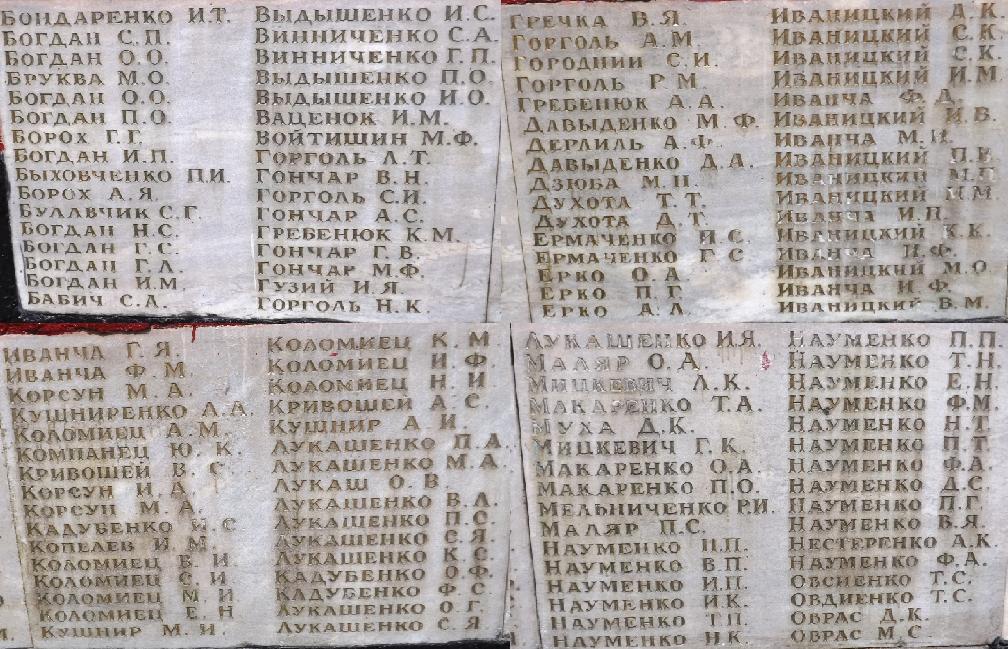 БОНДАРЕНКО И.Т.
БОГДАН С.П.
БОГДАН О.О.
БРУКВА М.О.
БОГДАН О.О.
БОГДАН П.О.
БОРОХ Г.Г.
БОГДАН И.П.
БЫХОВЧЕНКО П.И.
БОРОХ А.Я.
БУЛАВЧИК С.Г.
БОГДАН Н.С.
БОГДАН Г.С.
БОГДАН Г.Л.
БОГДАН И.М.
БАБИЧ С.А.
ВЫДЫШЕНКО И.С.
ВИННИЧЕНКО С.А.
ВИННИЧЕНКО Г.П.
ВЫДЫШЕНКО П.О.
ВЫДЫШЕНКО И.О.
ВАЦЕНОК И.М.
ВОЙТИШИН М.Ф.
ГОРГОЛЬ Л.Т.
ГОНЧАР В.Н.
ГОРГОЛЬ С.И.
ГОНЧАР А.С.
ГРЕБЕНЮК К.М.
ГОНЧАР Г.В.
ГОНЧАР М.Ф.
ГУЗИЙ И.Я.
ГОРГОЛЬ Н.К.
ГРЕЧКА В.Я.
ГОРГОЛЬ А.М.
ГОРОДНИЙ С.И.
ГОРГОЛЬ Р.М.
ГРЕБЕНЮК А.А.
ДАВЫДЕНКО М.Ф.
ДЕРЛИЛЬ А.Ф.
ДАВЫДЕНКО Д.А.
ДЗЮБА М.Н.
ДУХОТА Т.Т.
ДУХОТА Д.Т.
ЕРМАЧЕНКО И.С.
ЕРМАЧЕНКО Г С
ЕРКО О.А.
ЕРКО П.Г
ЕРКО А.Л
ИВАНИЦКИЙ Д.К.
ИВАНИЦКИЙ С.К.
ИВАНИЦКИЙ С.К.
ИВАНИЦКИЙ И.М
ИВАНЧА Ф.Д.
ИВАНИЦКИЙ И.В.
ИВАНЧА М.И.
ИВАНИЦКИЙ П.В
ИВАНИЦКИЙ М.П
ИВАНИЦКИЙ И.М
ИВАНЧА И.П.
ИВАНИЦКИЙ К.К.
ИВАНЧА И.Ф.
ИВАНИЦКИЙ М.О
ИВАНЧА И.Ф.
ИВАНИЦКИЙ В.М.
ИВАНЧА Г.Я.
ИВАНЧА Ф.М
КОРСУН М.А.
КУШНИРЕНКО А.А.
КОЛОМИЕЦ А.М.
КОМПАНЕЦ Ю.К.
КРИВОШЕЙ В.С
КОРСУН И.А.
КОРСУН М.А.
КАДУБЕНКО И С
КОПЕЛЕВ И М
КОЛОМИЕЦ В.И
КОЛОМИЕЦ С.И
КОЛОМИЕЦ М И
КОЛОМИЕЦ Е.Н
КУШНИР М.И.
КОЛОМИЕЦ К.М
КОЛОМИЕЦ И Ф
КОЛОМИЕЦ Н И
КРИВОШЕЙ А С.
КУШНИР А И.
ЛУКАШЕНКО П.А.
ЛУКАШЕНКО М.А
ЛУКАШ О.В.
ЛУКАШЕНКО В.А.
ЛУКАШЕНКО П.С.
ЛУКАШЕНКО С.Я.
ЛУКАШЕНКО К С
КАДУБЕНКО О.Ф.
КАДУБЕНКО Ф С
ЛУКАШЕНКО О.Г.
ЛУКАШЕНКО С.Я
ЛУКАШЕНКО И.Я.
МАЛЯР О.Д.
МИЦКЕВИЧ Л.К.
МАКАРЕНКО Т.А.
МУХА Д.К.
МИЦКЕВИЧ Г.К.
МАКАРЕНКО О.А.
МАКАРЕНКО П.О.
МЕЛЬНИЧЕНКО Р.И.
МАЛЯР П.С.
НАУМЕНКО Н.П.
НАУМЕНКО В.П.
НАУМЕНКО И.П.
НАУМЕНКО И.К.
НАУМЕНКО Т.П.
НАУМЕНКО Н.К.
НАУМЕНКО П.П.
НАУМЕНКО Т.Н.
НАУМЕНКО Е.Н.
НАУМЕНКО Ф.М.
НАУМЕНКО Н.Т.
НАУМЕНКО П.Т.
НАУМЕНКО Ф.А.
НАУМЕНКО Д.С.
НАУМЕНКО П.Г.
НАУМЕНКО В.Я.
НЕСТЕРЕНКО А.К.
НАУМЕНКО Ф.А.
ОВСИЕНКО Т.С.
ОВДИЕНКО Т.С.
ОВРАС Д.К.
ОВРАС М С.